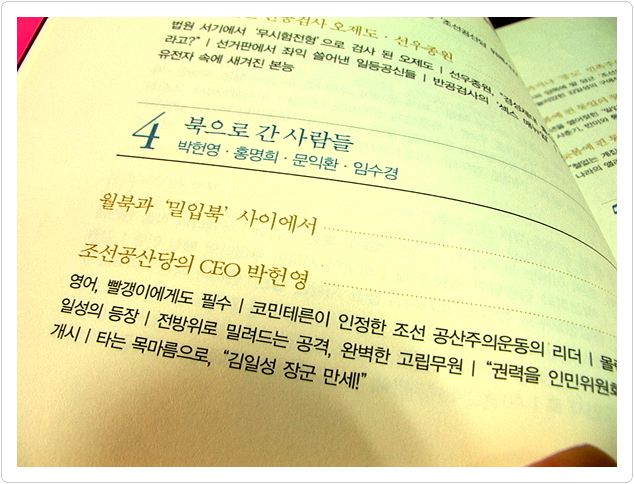 반공검사 오제도 · 선우종원
법원 서기에서 '무시험전형'으로 검사 된 오제도 | 선우종원, "검
라고?" | 선거판에서 좌익 쓸어낸 일등공신들 | 반공검사의 '섹스
유전자 속에 새겨진 본능
4 북으로 간 사람들
박헌영 · 홍명희 · 문익환 · 임수경
월북과 '밀입북' 사이에서
조선공산당의 CEO 박헌영
영어, 빨갱이에게도 필수 | 코민테른이 인정한 조선 공산주의운동의 리더 | 몰
일성의 등장 | 전방위로 밀려드는 공격, 완벽한 고립무원 | "권력을 인민위원회
개시 | 타는 목마름으로, "김일성 장군 만세!"